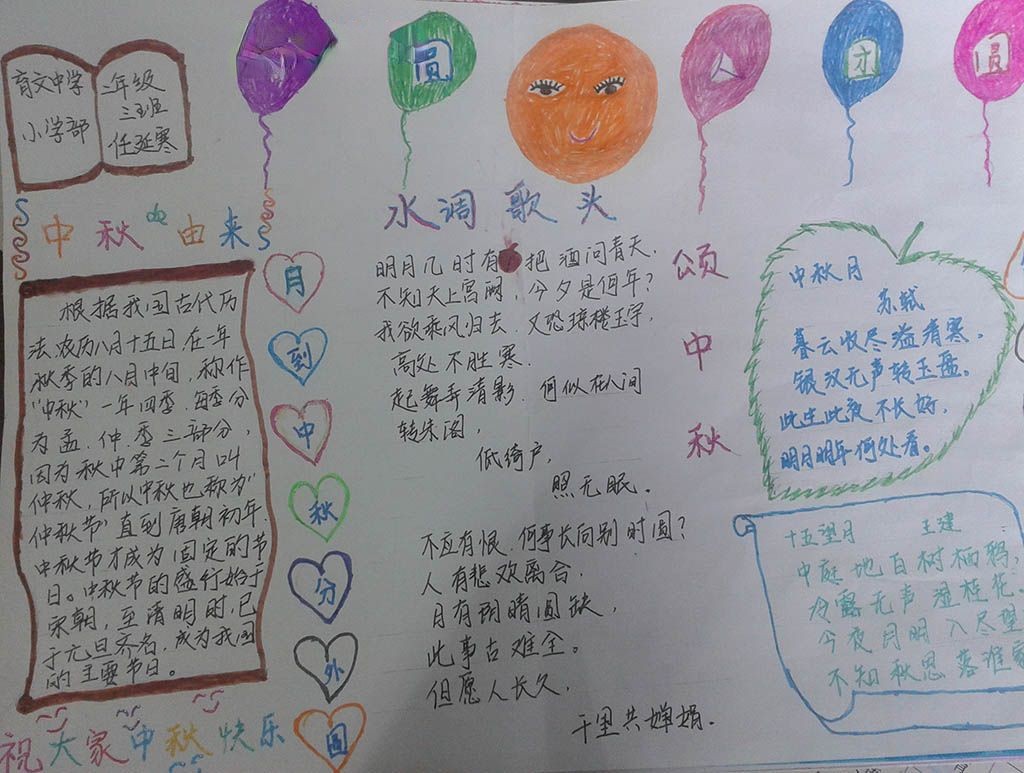 育文中学
小学部
二年级
三班
任延寒
员
人
才
圆
中秋的由来
根据我国古代历
法,农历八月十五日,在一年
秋季的八月中旬,称作
"中秋"一年四季,每季分
为孟、仲、季三部分,
因为秋中第二个月叫
仲秋,所以中秋也称为"
仲秋节"直到唐朝初年,
中秋节才成为固定的节
日。中秋节的盛行始于
宋朝,至清明时,已
于元旦齐名,成为我国
的主要节日。
祝大家中秋快乐
月
到
中
秋
分
外
圆
水调歌头
明月几时有,把酒问青天,
不知天上宫阙,今夕是何年?
我欲乘风归去,又恐琼楼玉宇,
高处不胜寒.
起舞弄清影,何似在人间
转朱阁,
低绮户,
照无眠。
不应有恨,何事长向别时圆?
人有悲欢离合,
月有阴晴圆缺,
此事古难全。
但愿人长久,
千里共婵娟.
颂
中
秋
中秋月
苏轼
暮云收尽溢清寒,
银汉无声转玉盘。
此生此夜不长好,
明月明年何处看。
十五望月 王建
中庭地白树栖鸦,
冷露无声湿桂花.
今夜月明人尽望
不知秋思落谁家